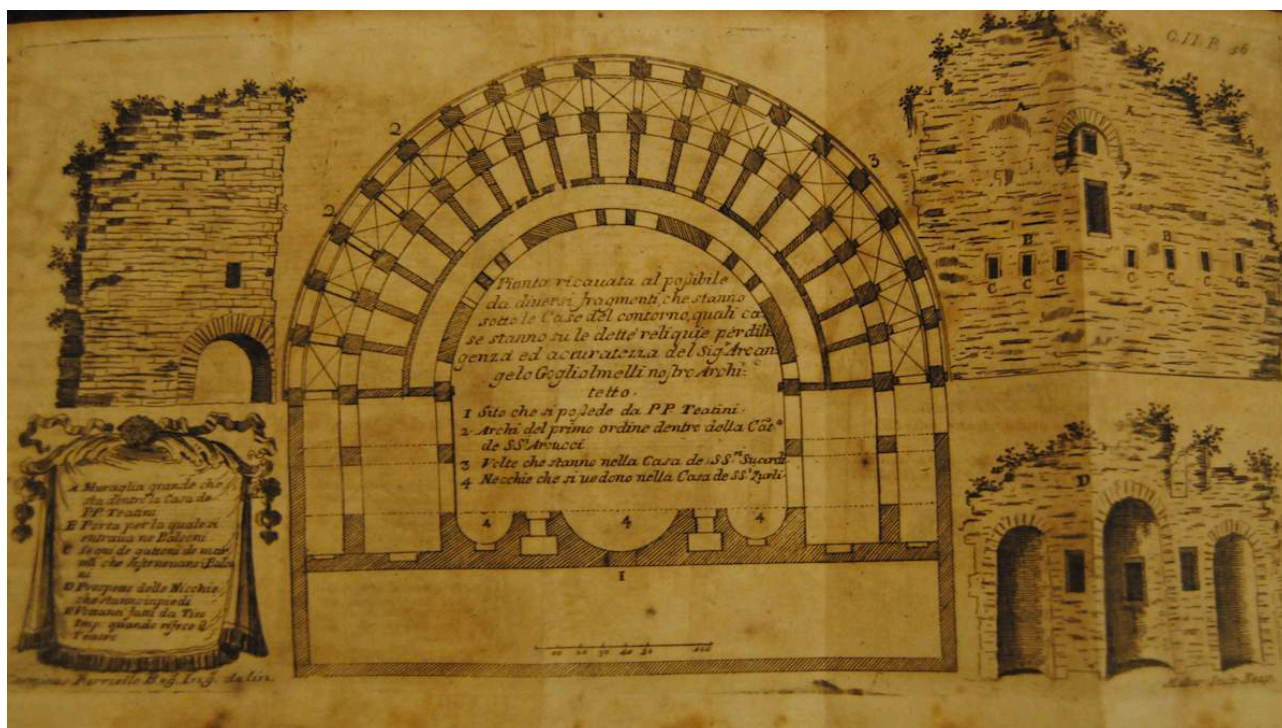 G.II.P. 56
2
2
3
Pianta ricauata al poſsibile
da diuersi fragmenti, che stanno
sotto le Case del contorno, quali ca
se stanno su le dette reliquie per dili
genza ed accuratezza del Sig.r Arcan
gelo Gogliolmelli noſtro Archi:
tetto.
1 Sito che si poſsede da PP. Teatini.
2 Archi del primo ordine dentro della
de SS.i Arcucci
3 Volte che stanno nella Casa de SS.ri Suardi
4 Necchie che si uedono nella Casa de SS.i Zurli
4
4
4
1
10 20 30 40 50 100
A
A
B
B
C C C
C C C C
D
A Muraglia grande che
sta dentro la Casa de
PP. Teatini
B Porta per la quale si
entraua ne Balconi
C Segni de gattoni de mar
mi che sosteneuano i Balco
ni
D Prospetto delle Nicchie
che stanno in piedi
fatti da Tito
Imp. quando rifece il
Teatro
Ferriello Reg. Ing. delin.
Sculp. Neap.